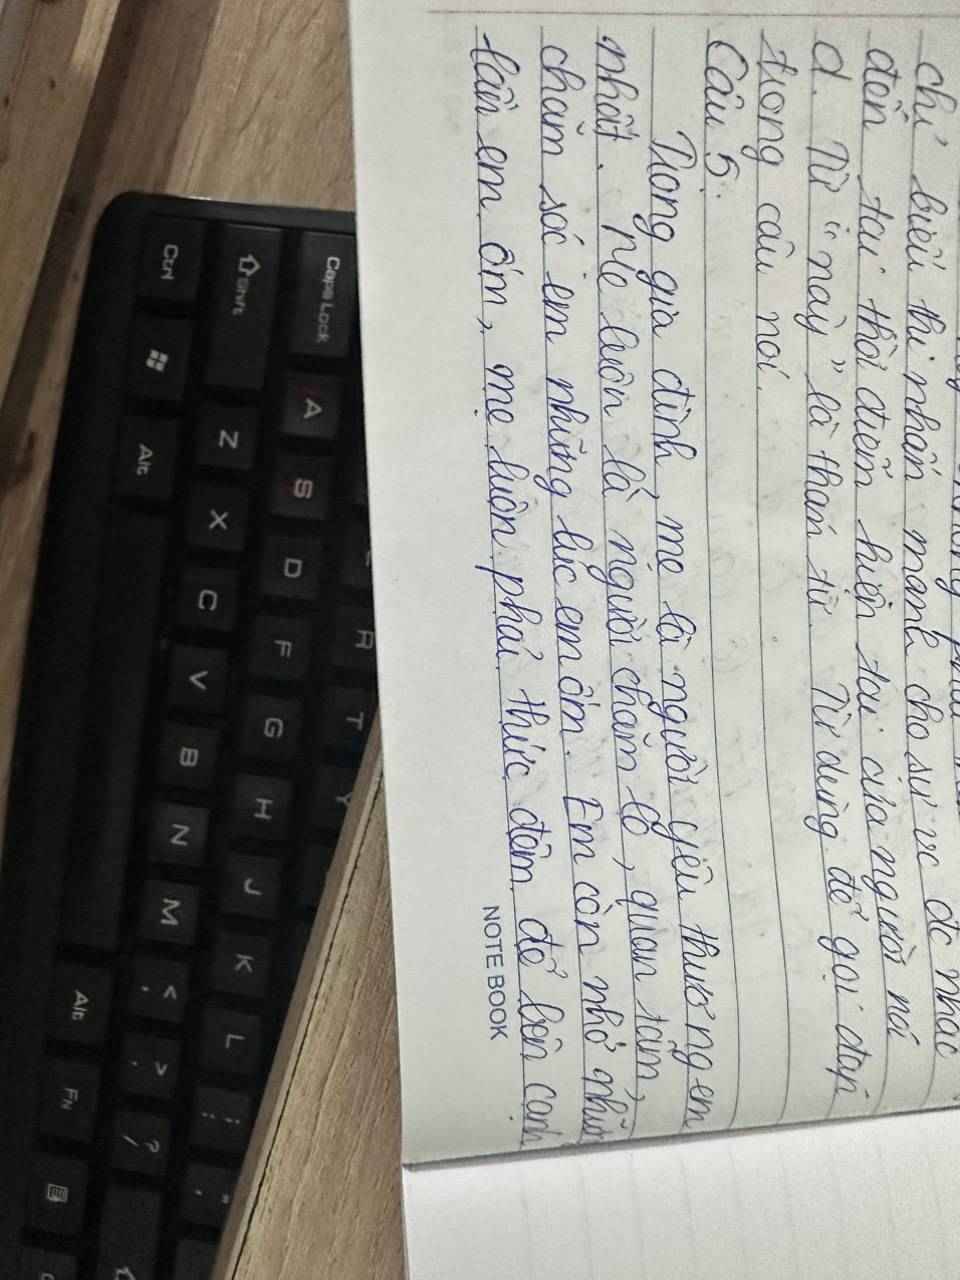 chỉ biểu thị nhấn mạnh cho sự vc đc nhắc
đến tại thời điểm hiện tại của người nói
d. Từ "này" là thán từ. Từ dùng để gọi đáp
trong câu nói.
Câu 5:
Trong gia đình, mẹ là người yêu thương em
nhất. Mẹ luôn là người chăm lo, quan tâm,
chăm sóc em những lúc em ốm. Em còn nhớ những
lần em ốm, mẹ luôn phải thức đêm để bên cạnh
NOTE BOOK
Caps Lock A S D F G H J K L ; "
Shift Z X C V B N M < > ?
Ctrl Alt Alt FN
R T Y